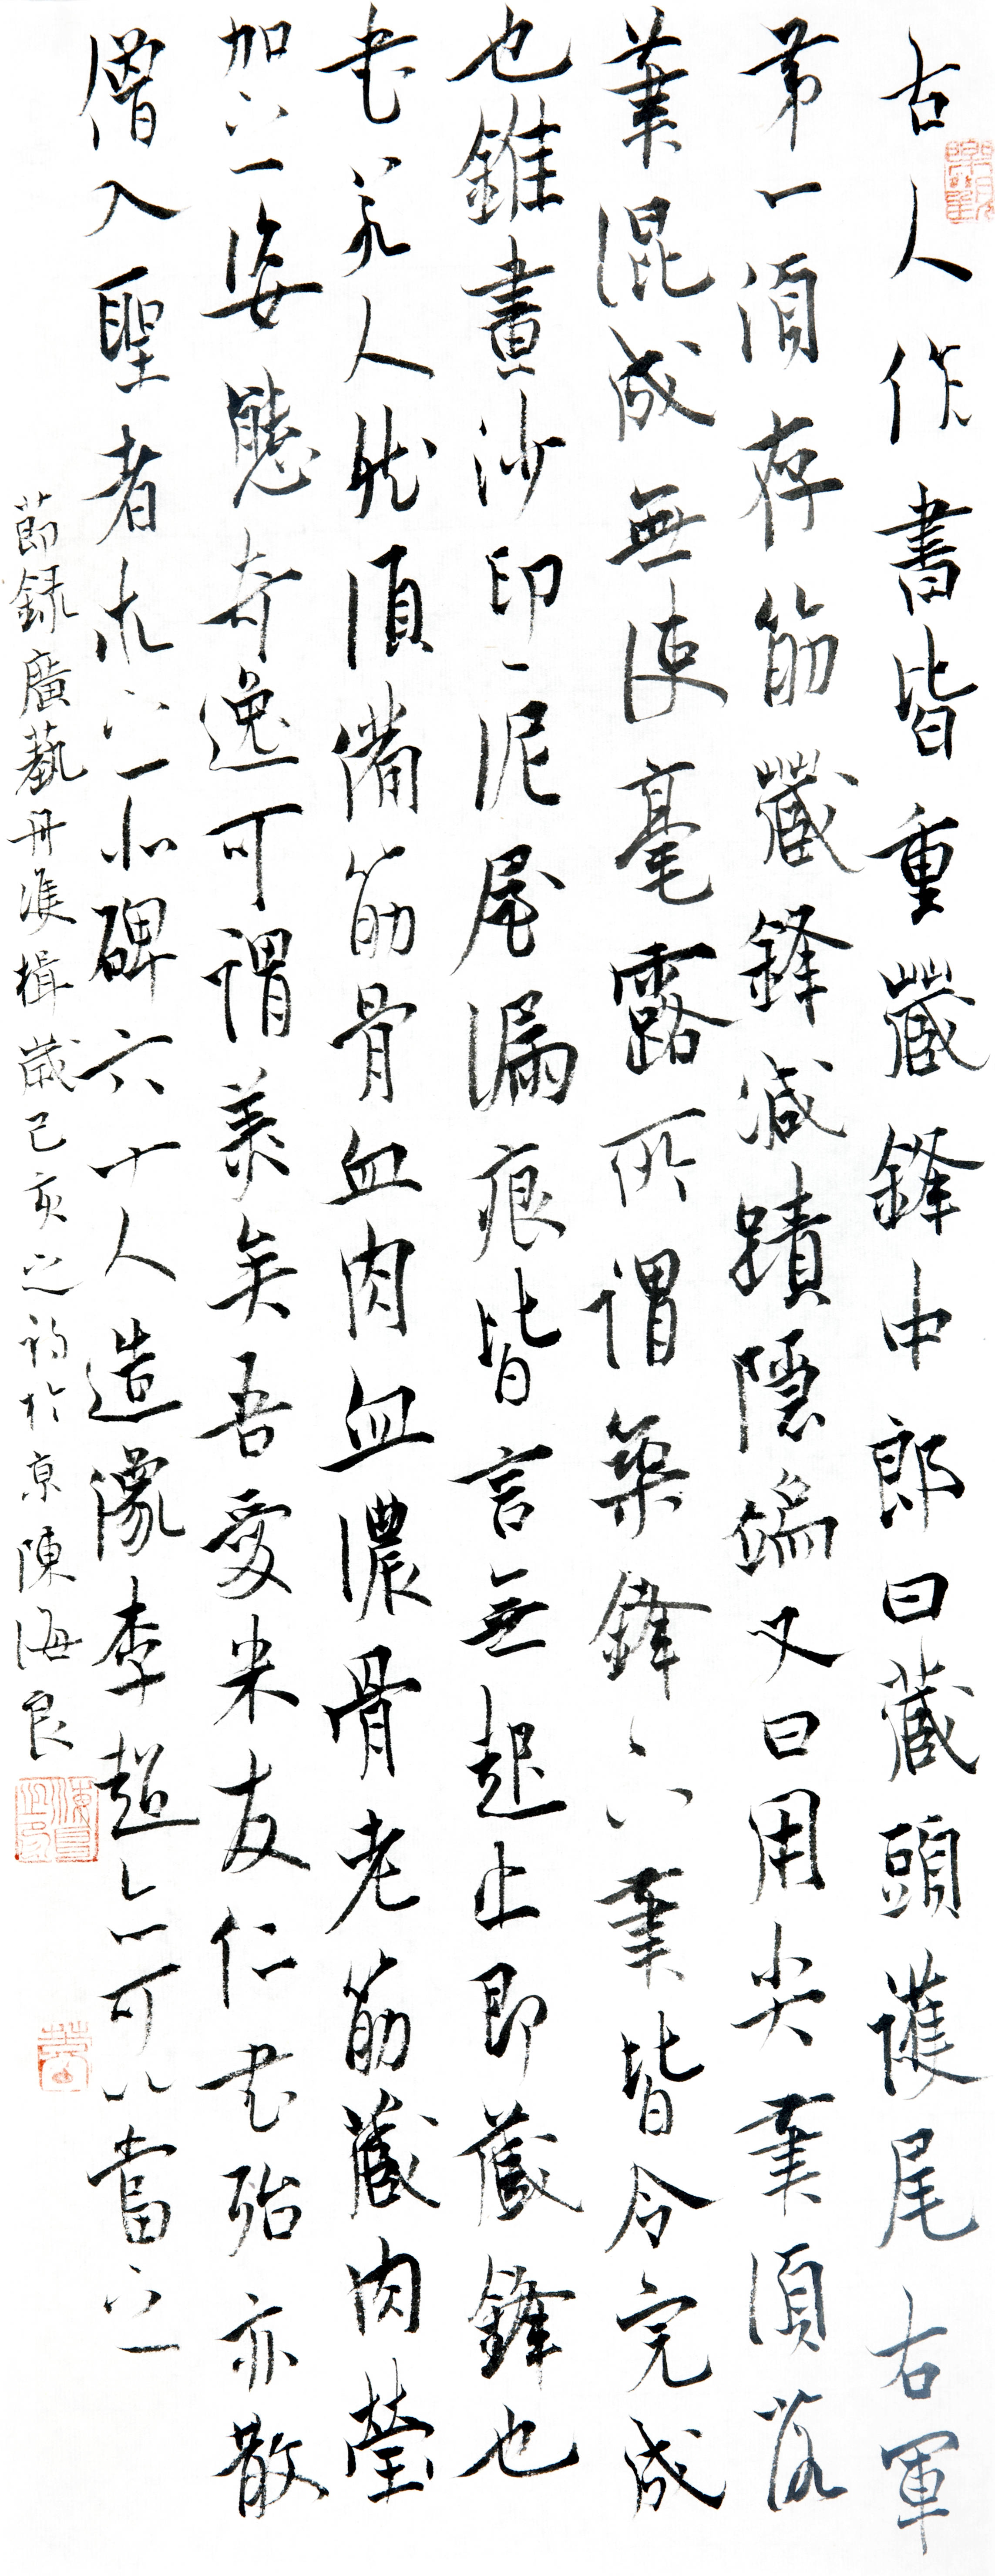 古人作書皆重藏鋒中郎曰藏頭護尾右軍
第一須存筋藏鋒滅蹟隱端又曰用尖筆須落
筆混成無使毫露所謂築鋒下筆皆令完成
也錐畫沙印々泥屋漏痕皆言無起止即藏鋒也
書若人然須備筋骨血肉血濃骨老筋藏肉瑩
加之姿態奇逸可謂美矣吾愛米友仁書殆亦散
僧入聖者求之北碑六十人造像李超亦可以當之
節録廣藝舟雙楫歲己亥之初於京陳海良